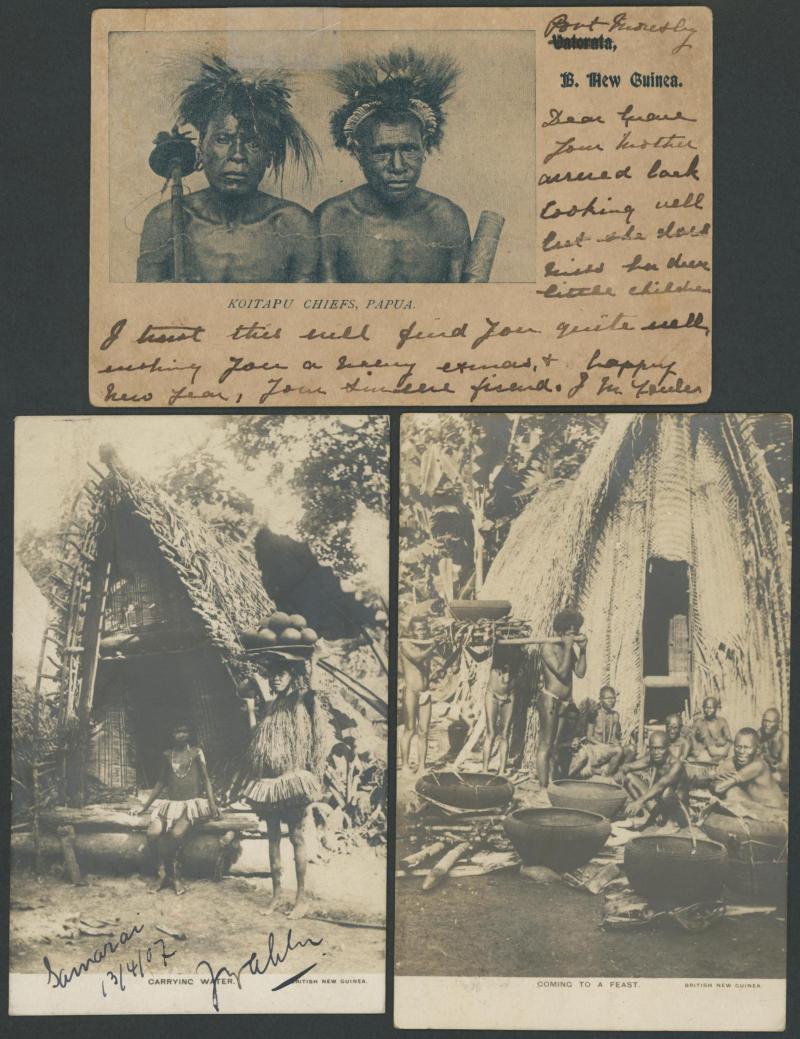 Port Moresby
Vatorata,
B. New Guinea.
Dear
Your Mother
arrived back
looking well
but she does
miss her dear
little children
KOITAPU CHIEFS, PAPUA.
I trust this will find you quite well,
wishing you a merry exmas, & happy
New Year, Your Sincere friend. J M
Samarai
13/4/07
CARRYING WATER.
BRITISH NEW GUINEA.
COMING TO A FEAST.
BRITISH NEW GUINEA.